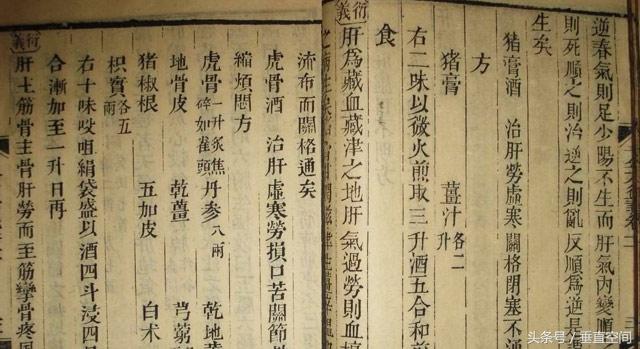 逆春氣則足少陽不生而肝氣內變順
則死順之則治逆之則亂反順為逆是
生矣
猪膏酒 治肝勞虛寒關格閉塞不
方
猪膏 薑汁各二升
右二味以微火煎取三升酒五合和
食
衍義 肝為藏血藏津之地肝氣過勞則血
流布而關格通矣
虎骨酒 治肝虛寒勞損口苦關節
縮煩悶方
虎骨一升炙焦碎如雀頭 丹参八兩 乾地
地骨皮 乾薑 芎藭
猪椒根 五加皮 白术
枳實各五兩
右十味㕮咀絹袋盛以酒四斗浸四
合漸加至一升日再
衍義 肝主筋骨主骨肝勞而至筋攣骨疼
头条号/垂直空间